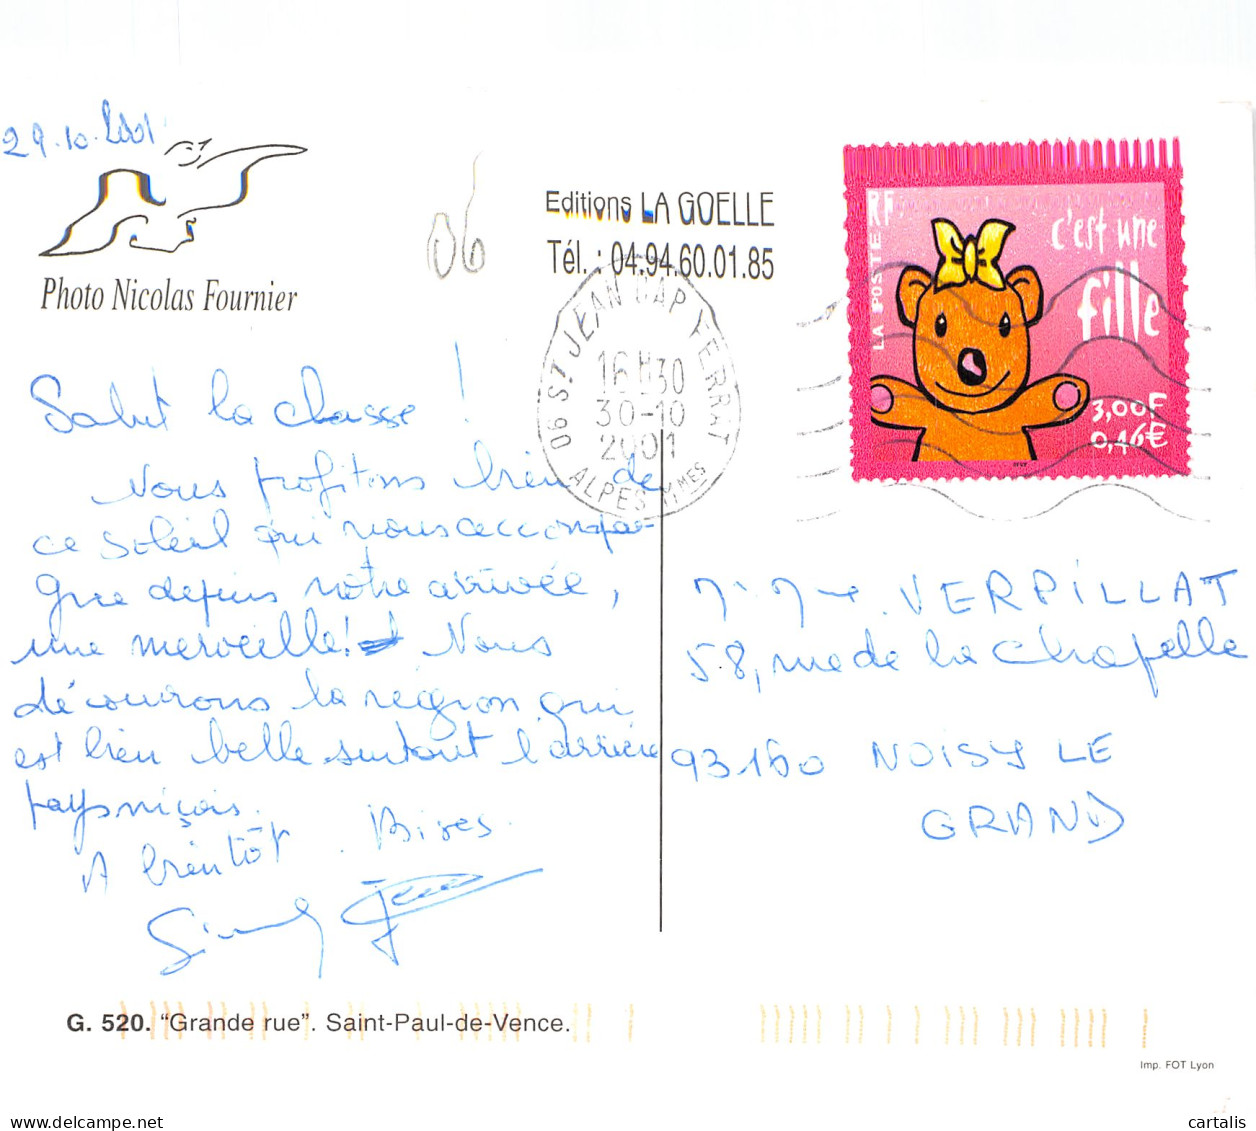 29.10.2001
Photo Nicolas Fournier
06
Editions LA GOELLE
Tél. : 04.94.60.01.85
06 ST JEAN CAP FERRAT
16H30
30-10
2001
ALPES MMES
RF
LA POSTE
c'est une
fille
3,00F
0,46€
Salut la classe !
Nous profitons bien de
ce soleil qui nous accompa-
gne depuis notre arrivée,
une merveille! Nous
découvrons la region qui
est bien belle surtout l'arrière
pays niçois.
A bientôt. Bises.
M. Mme. VERPILLAT
58, rue de la Chapelle
93160 NOISY LE
GRAND
G. 520. “Grande rue”. Saint-Paul-de-Vence.
Imp. FOT Lyon
www.delcampe.net
cartalis